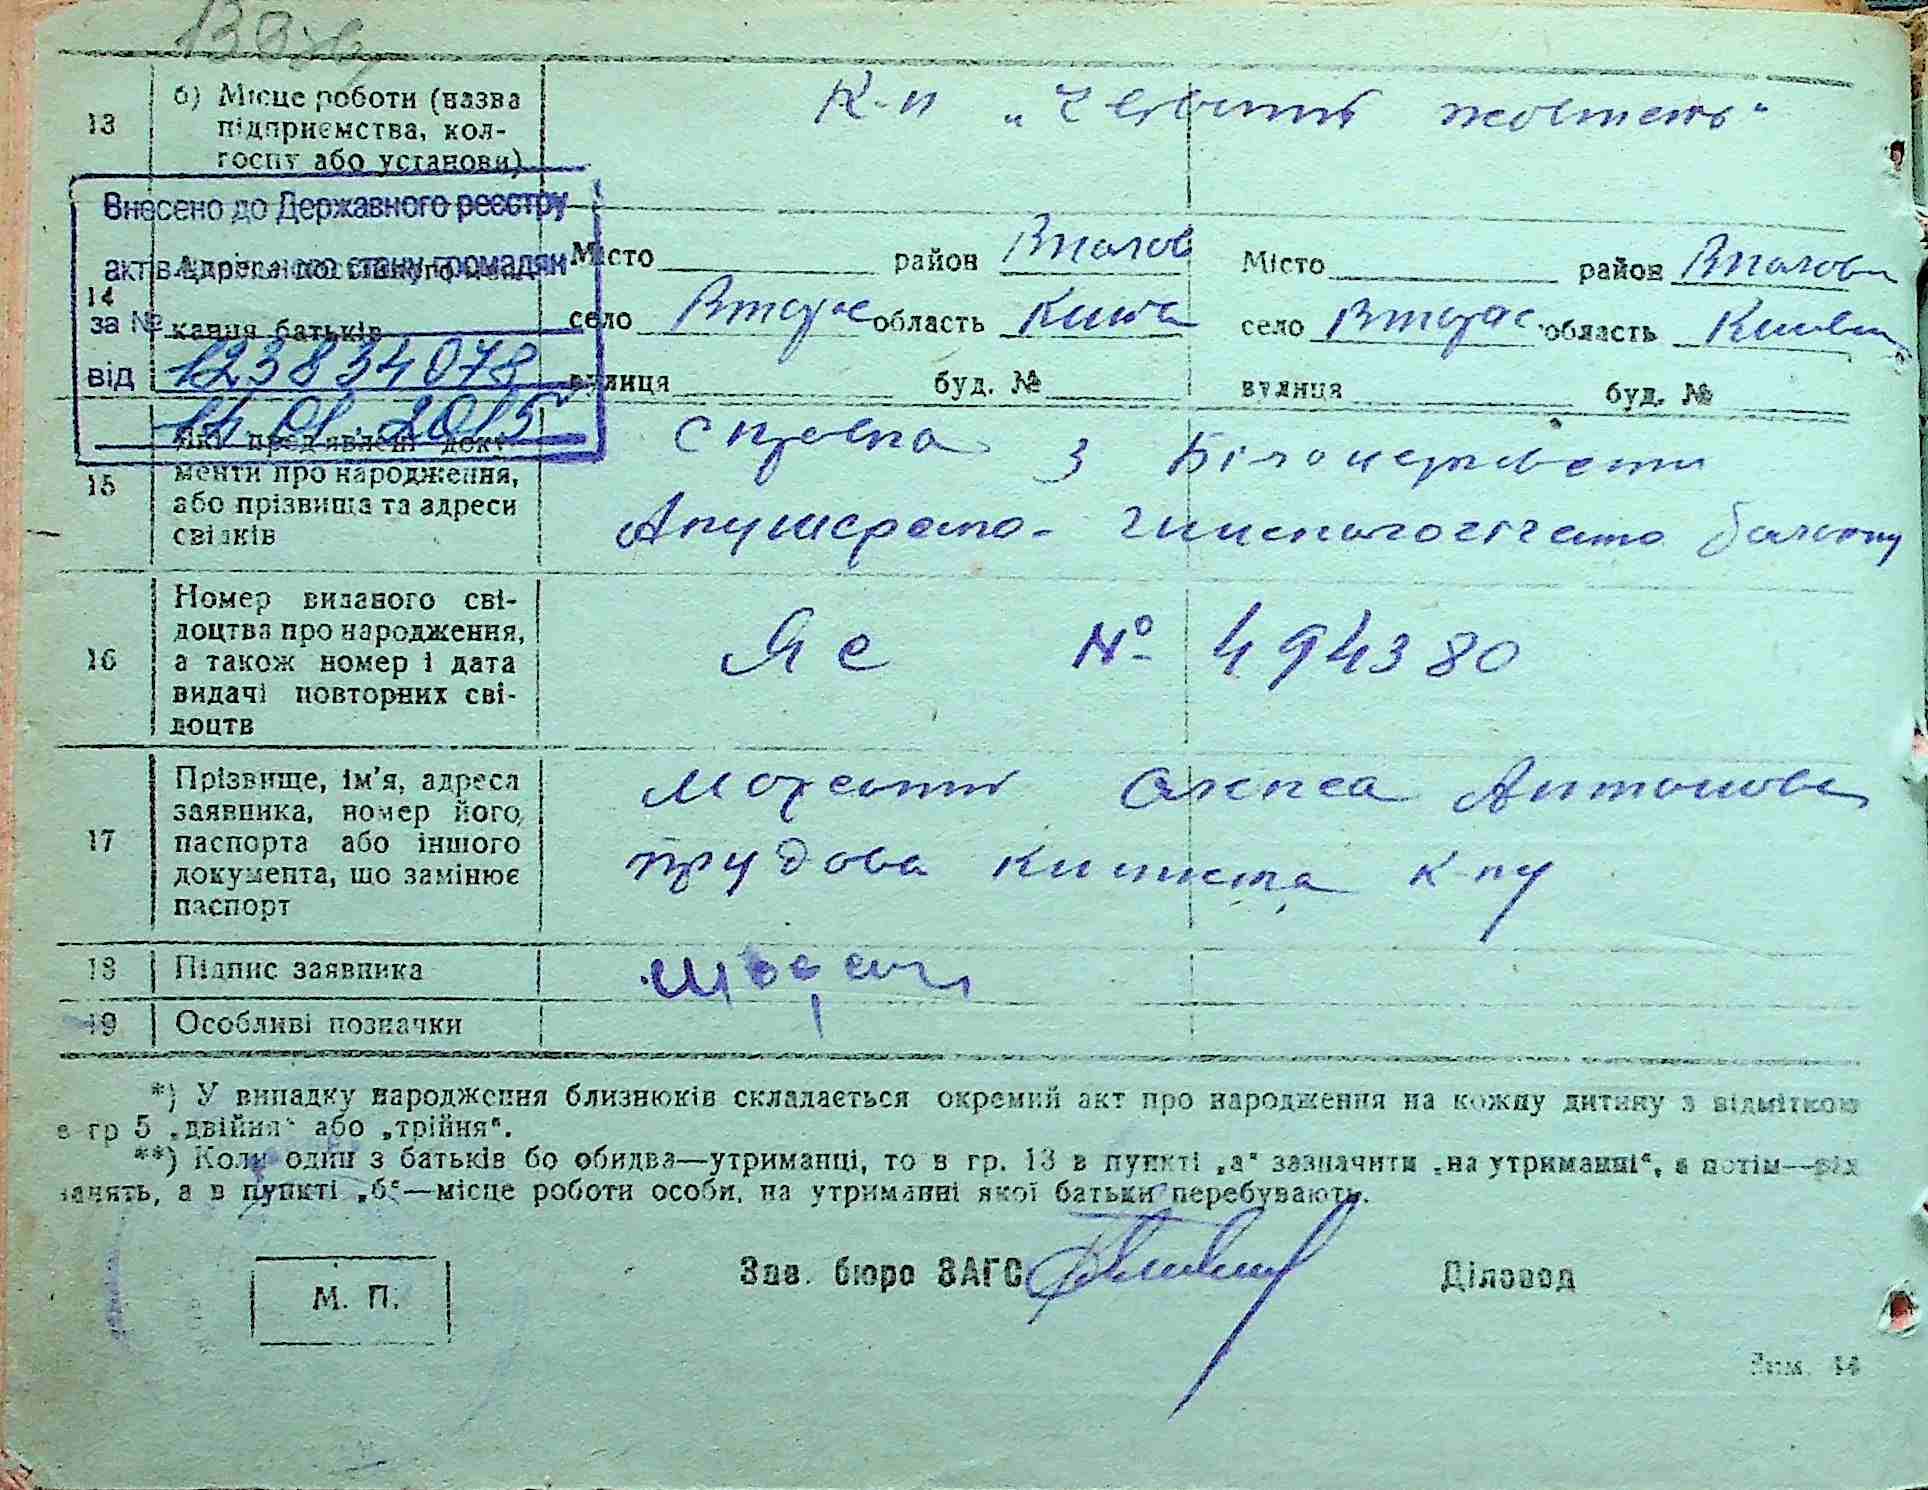 13 б) Місце роботи (назва підприємства, колгоспу або установи)
К-п „Червоний жовтень“
Внесено до Державного реєстру
актів цивільного стану громадян
за № 123834078
від 14.01.2015
14 Адреса постійного мешкання батьків
Місто район Володар Місто район Володар
село область Київська село область Київська
вулиця буд. № вулиця буд. №
15 Які пред'явлені документи про народження, або прізвища та адреси свідків
Справка з Білоцерківського
Акушерсько-гинекологічного
16 Номер виданого свідоцтва про народження, а також номер і дата видачі повторних свідоцтв
ЯС № 494380
17 Прізвище, ім'я, адреса заявника, номер його паспорта або іншого документа, що замінює паспорт
Олекса Антонов
трудова книжка к-пу
18 Підпис заявника
19 Особливі позначки
*) У випадку народження близнюків складається окремий акт про народження на кожну дитину з відміткою
в гр 5 „двійня“ або „трійня“.
**) Коли один з батьків бо обидва—утриманці, то в гр. 13 в пункті „а“ зазначити „на утриманні“, а потім—рід
занять, а в пункті „б“—місце роботи особи, на утриманні якої батьки перебувають.
М. П.
Зав. бюро ЗАГС Діловод